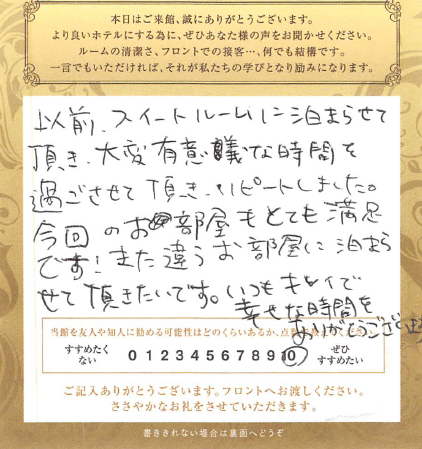 本日はご来館、誠にありがとうございます。
より良いホテルにする為に、ぜひあなた様の声をお聞かせください。
ルームの清潔さ、フロントでの接客…、何でも結構です。
一言でもいただければ、それが私たちの学びとなり励みになります。
以前、スイートルームに泊まらせて
頂き、大変有意義な時間を
過ごさせて頂き、リピートしました。
今回のお部屋もとても満足
です！また違うお部屋に泊まら
せて頂きたいです。いつもキレイで
幸せな時間を
ありがとうござい
当館を友人や知人に勧める可能性はどのくらいあるか、点
すすめたく
ない
0 1 2 3 4 5 6 7 8 9 10
ぜひ
すすめたい
ご記入ありがとうございます。フロントへお渡しください。
ささやかなお礼をさせていただきます。
書ききれない場合は裏面へどうぞ